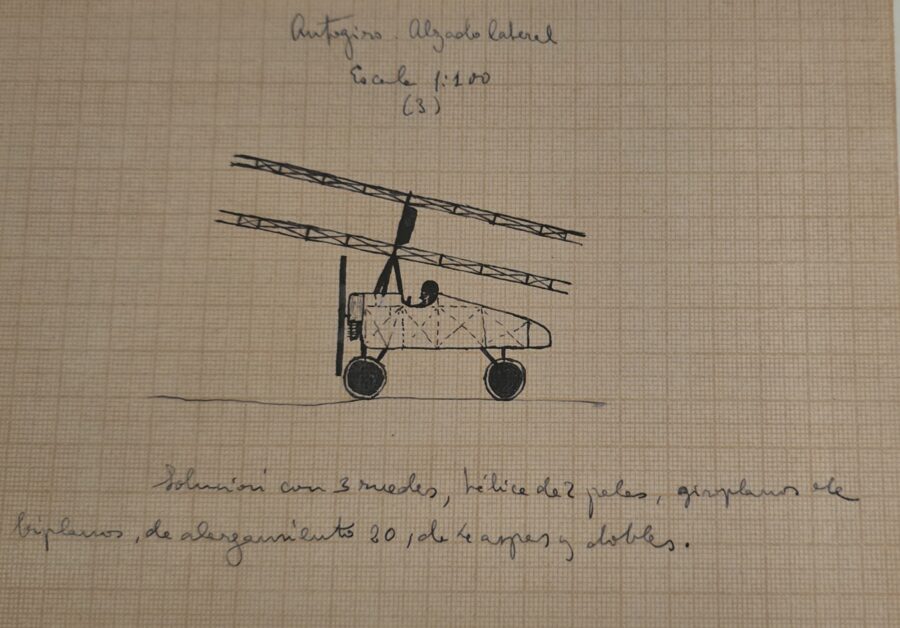 Autogiro. Alzado lateral
Escala 1:100
(3)
Solución con 3 ruedas, hélice de 2 palas, giroplanos
biplanos, de alargamiento 20, de 4 aspas y dobles.